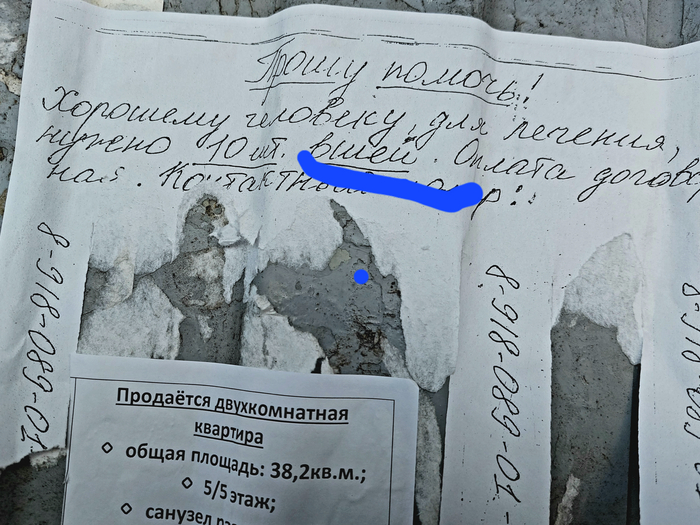 Прошу помочь!
Хорошему человеку, для лечения,
нужно 10 шт. вшей. Оплата
Контактный
8-918-089-01
8-918-089-01-
Продаётся двухкомнатная
квартира
◊ общая площадь: 38,2кв.м.;
◊ 5/5 этаж;
◊ санузел